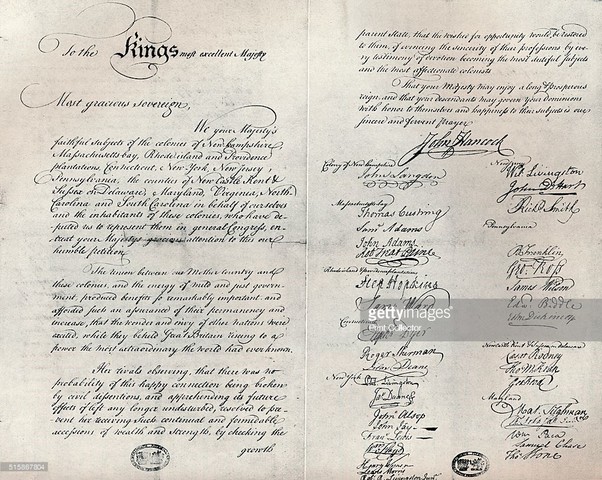 To the Kings most excellent Majesty
Most gracious Sovereign,
We your Majesty's
faithful subjects of the colonies of Newhampshire
Massachusetts bay, Rhode island and Providence
plantations, Connecticut, New York, New Jersey
Pennsylvania, the counties of New Castle Kent &
Sussex on Delaware, Maryland, Virginia, North
Carolina and South Carolina in behalf of ourselves
and the inhabitants of these colonies, who have de-
puted us to represent them in general Congress, en-
treat your Majestys gracious attention to this our
humble petition.
The union between our Mother Country and
these colonies, and the energy of mild and just govern-
ment, produced benefits so remarkably important and
afforded such an assurance of their permanency and
increase, that the wonder and envy of other nations were
excited, while they beheld Great Britain rising to a
power the most extraordinary the world had ever known.
Her rivals observing, that there was no
probability of this happy connection being broken
by civil dissentions, and apprehending its future
effects if left any longer undisturbed, resolved to pre-
vent her receiving such continual and formidable
accessions of wealth and strength, by checking the
growth
parent State, that the wishes for opportunity would be restored
to them, of evincing the sincerity of their professions by eve-
ry testimony of devotion becoming the most dutiful subjects
and the most affectionate colonists
That your Majesty may enjoy a long & prosperous
reign, and that your descendants may govern your Dominions
with honor to themselves and happiness to their subjects is our
sincere and fervent prayer
John Hancock
Colony of New hampshire
John Langdon
Massachusetts bay
Thomas Cushing
Saml Adams
John Adams
Rob Treat Paine
Rhode island & providence plantations
Step Hopkins
Sam: Ward
Connecticut
Elipht Dyer
Roger Sherman
Silas Deane
New York
Phil Livingston
Jas Duane
John Alsop
John Jay
Frans Lewis
Wm Floyd
Henry Wisner
Lewis Morris
Rob. R Livingston Junr
New Jersey
Wil Livingston
John D Hart
Richd Smith
Pennsylvania
B Franklin
Geo: Ross
James Wilson
Edwd Biddle
Newcastle Kent & Sussex on Delaware
Caesar Rodney
Tho M:Kean
Geo Read
Maryland
Mat. Tilghman
Wm Paca
Samuel Chase
Thos Stone
gettyimages
Print Collector
515887804